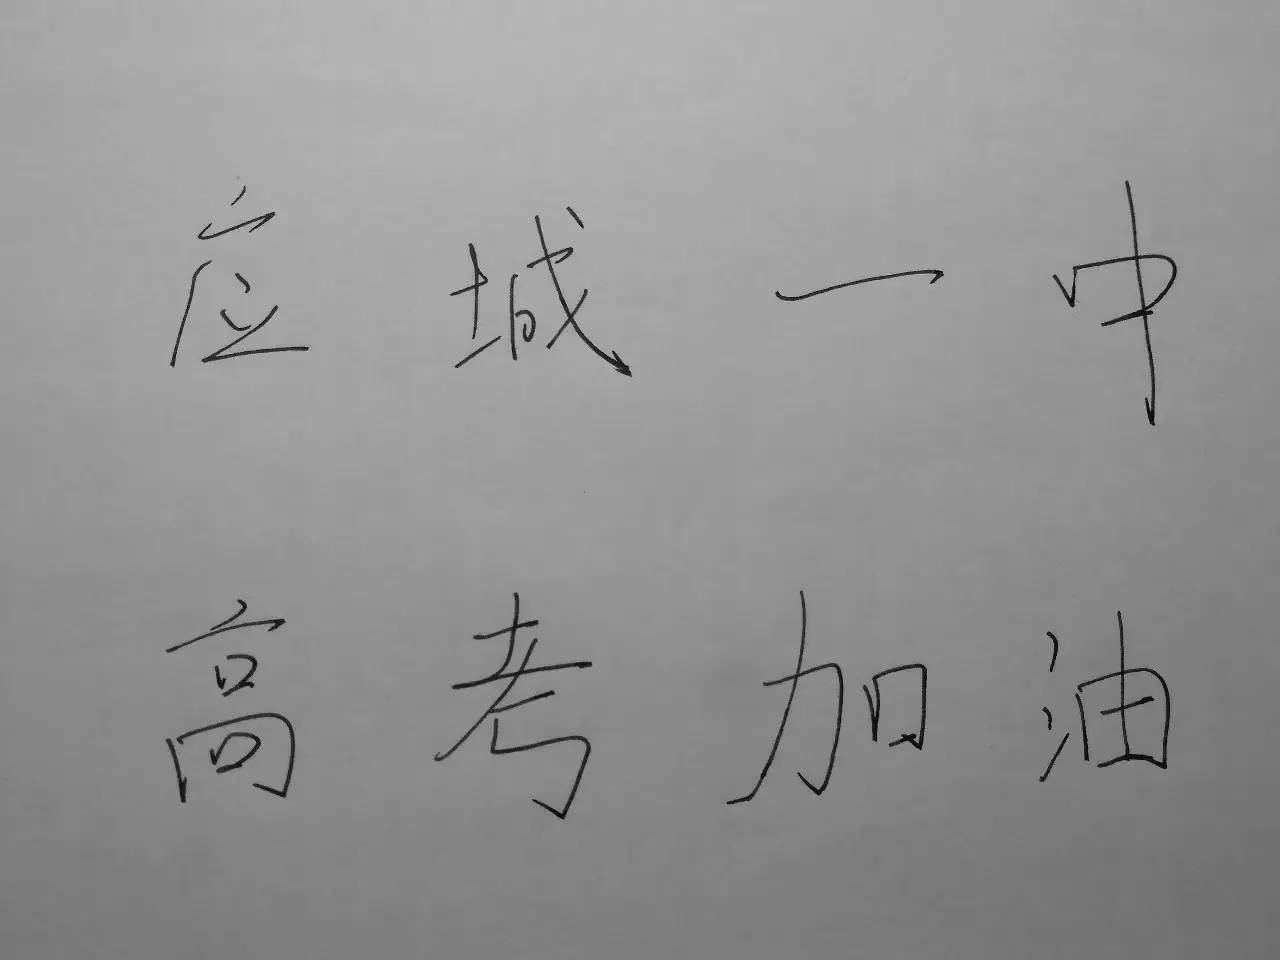 应城一中
高考加油